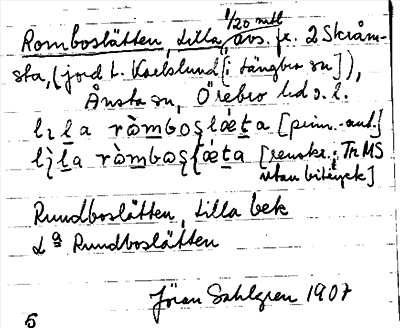 1/20 mtl
Romboslätten, Lilla, avs. fr. 2 Skråm-
sta, (jord t. Karlslund [i Längbro sn]),
Ånsta sn, Örebro hd o. l.
la ròmboslǽta [prim.-ant.]
la ròmboslǽta [renskr. i Tr MS
utan bitryck]
Rundboslätten, Lilla bek
La Rundboslätten
Jöran Sahlgren 1907
5